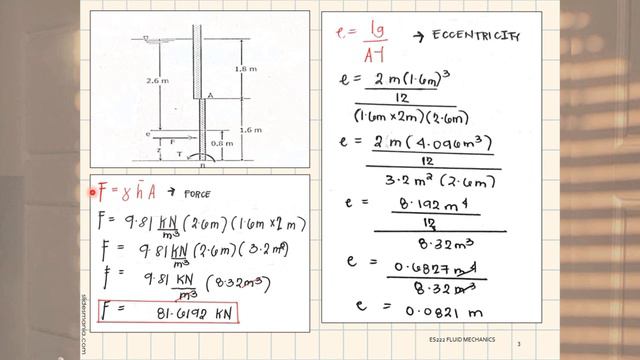 2.6 m
1.8 m
A
e
F
0.8 m
1.6 m
z
T
B
F = γ h̄ A → FORCE
F = 9.81 KN/m³ (2.6m)(1.6m × 2m)
F = 9.81 KN/m³ (2.6m)(3.2m²)
F = 9.81 KN/m³ (8.32m³)
F = 81.6192 KN
e = Ig/Aȳ → ECCENTRICITY
e = 2m(1.6m)³
12
(1.6m × 2m)(2.6m)
e = 2m(4.096m³)
12
3.2m² (2.6m)
e = 8.192m⁴
12
8.32m³
e = 0.6827m⁴
8.32m³
e = 0.0821 m
slidesmania.com
ES222 FLUID MECHANICS
3